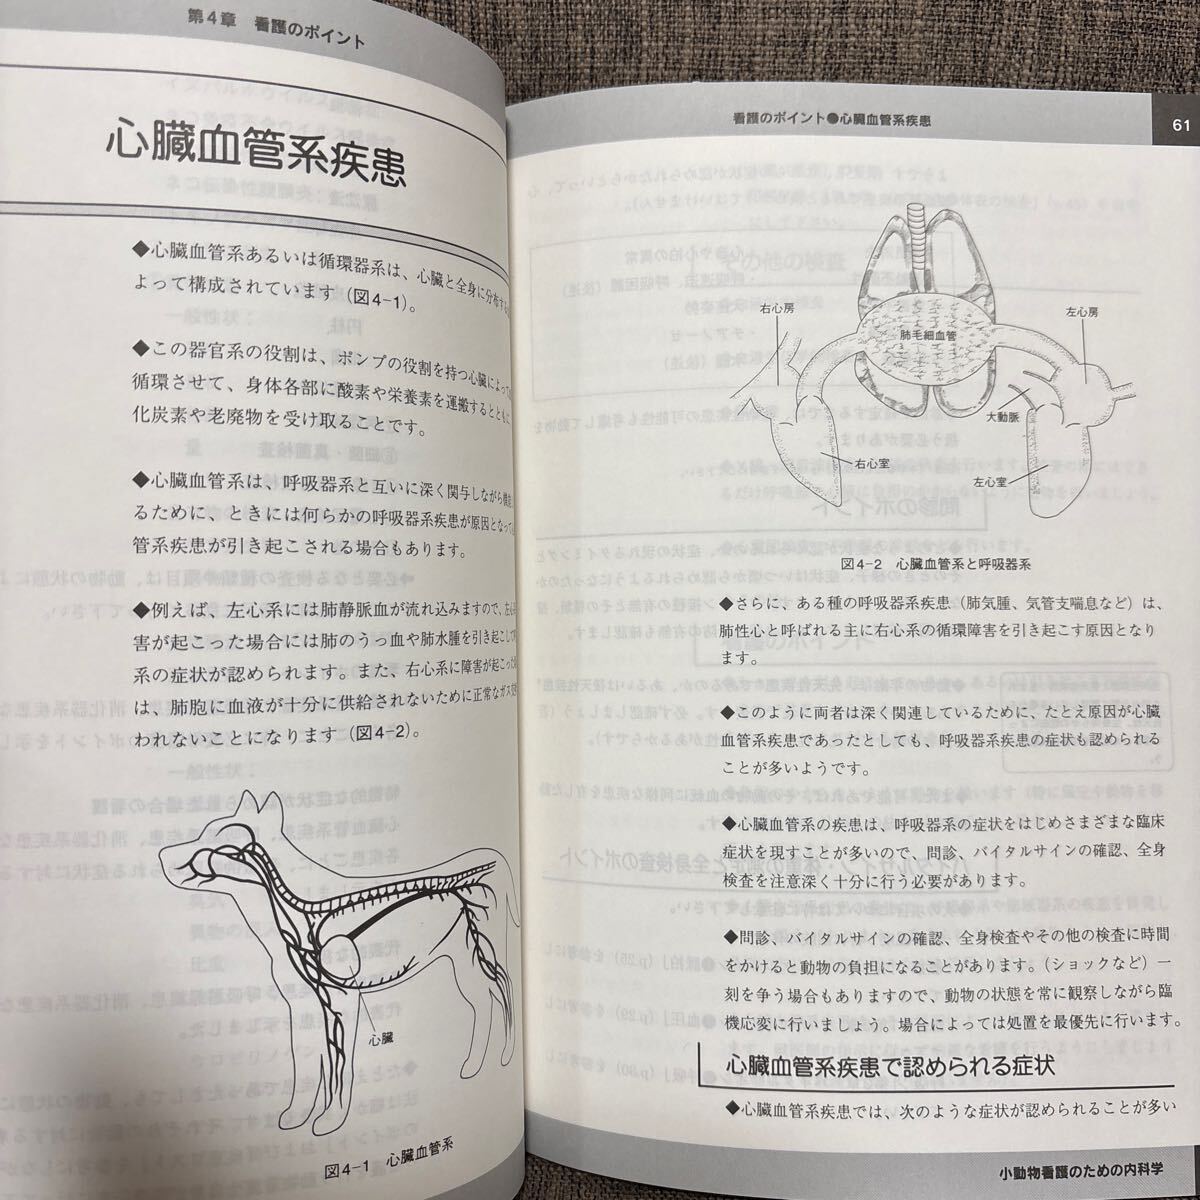 第4章 看護のポイント
心臓血管系疾患
◆心臓血管系あるいは循環器系は、心臓と全身に分布する
よって構成されています(図4-1)。
◆この器官系の役割は、ポンプの役割を持つ心臓によって
循環させて、身体各部に酸素や栄養素を運搬するとともに
化炭素や老廃物を受け取ることです。
◆心臓血管系は、呼吸器系と互いに深く関与しながら機能
るために、ときには何らかの呼吸器系疾患が原因となって
管系疾患が引き起こされる場合もあります。
◆例えば、左心系には肺静脈血が流れ込みますので、左心
害が起こった場合には肺のうっ血や肺水腫を引き起こして
系の症状が認められます。また、右心系に障害が起こった
は、肺胞に血液が十分に供給されないために正常なガス
われないことになります(図4-2)。
心臓
図4-1 心臓血管系
看護のポイント●心臓血管系疾患
61
右心房
肺毛細血管
左心房
大動脈
右心室
左心室
図4-2 心臓血管系と呼吸器系
◆さらに、ある種の呼吸器系疾患(肺気腫、気管支喘息など)は、
肺性心と呼ばれる主に右心系の循環障害を引き起こす原因となり
ます。
◆このように両者は深く関連しているために、たとえ原因が心臓
血管系疾患であったとしても、呼吸器系疾患の症状も認められる
ことが多いようです。
◆心臓血管系の疾患は、呼吸器系の症状をはじめさまざまな臨床
症状を現すことが多いので、問診、バイタルサインの確認、全身
検査を注意深く十分に行う必要があります。
◆問診、バイタルサインの確認、全身検査やその他の検査に時間
をかけると動物の負担になることがあります。(ショックなど)一
刻を争う場合もありますので、動物の状態を常に観察しながら臨
機応変に行いましょう。場合によっては処置を最優先に行います。
心臓血管系疾患で認められる症状
◆心臓血管系疾患では、次のような症状が認められることが多い
小動物看護のための内科学